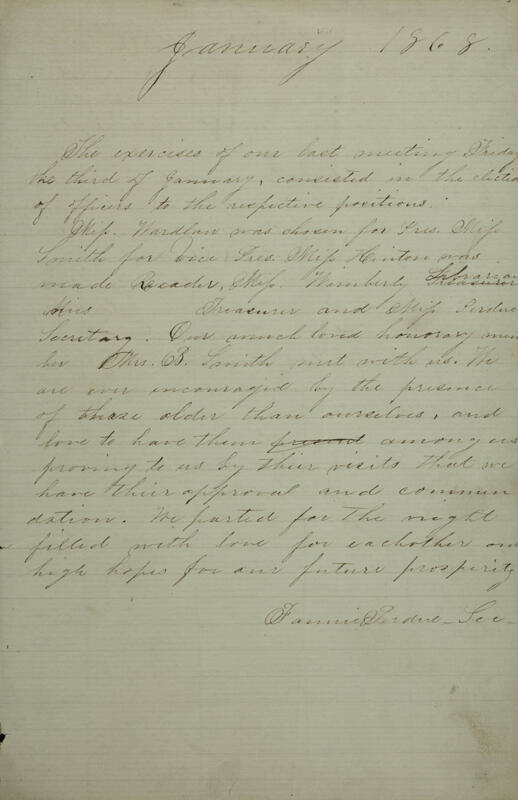 January 1868.
The exercises of our last meeting Friday
the third of January, consisted in the election
of officers to the respective positions.
Miss. Wardlaw was chosen for Pres. Miss
Smith for Vice Pres. Miss Hinton was
made Reader, Miss. Wimberly Librarian
Miss Treasurer and Miss Perdue
Secretary. Our much loved honorary mem
ber Mrs. B. Smith met with us. We
are ever encouraged by the presence
of those older than ourselves, and
love to have them present among us
proving to us by thier visits that we
have thier approval and commen
dation. We parted for the night
filled with love for eachother and
high hopes for our future prosperity
Fannie Perdue - Sec -